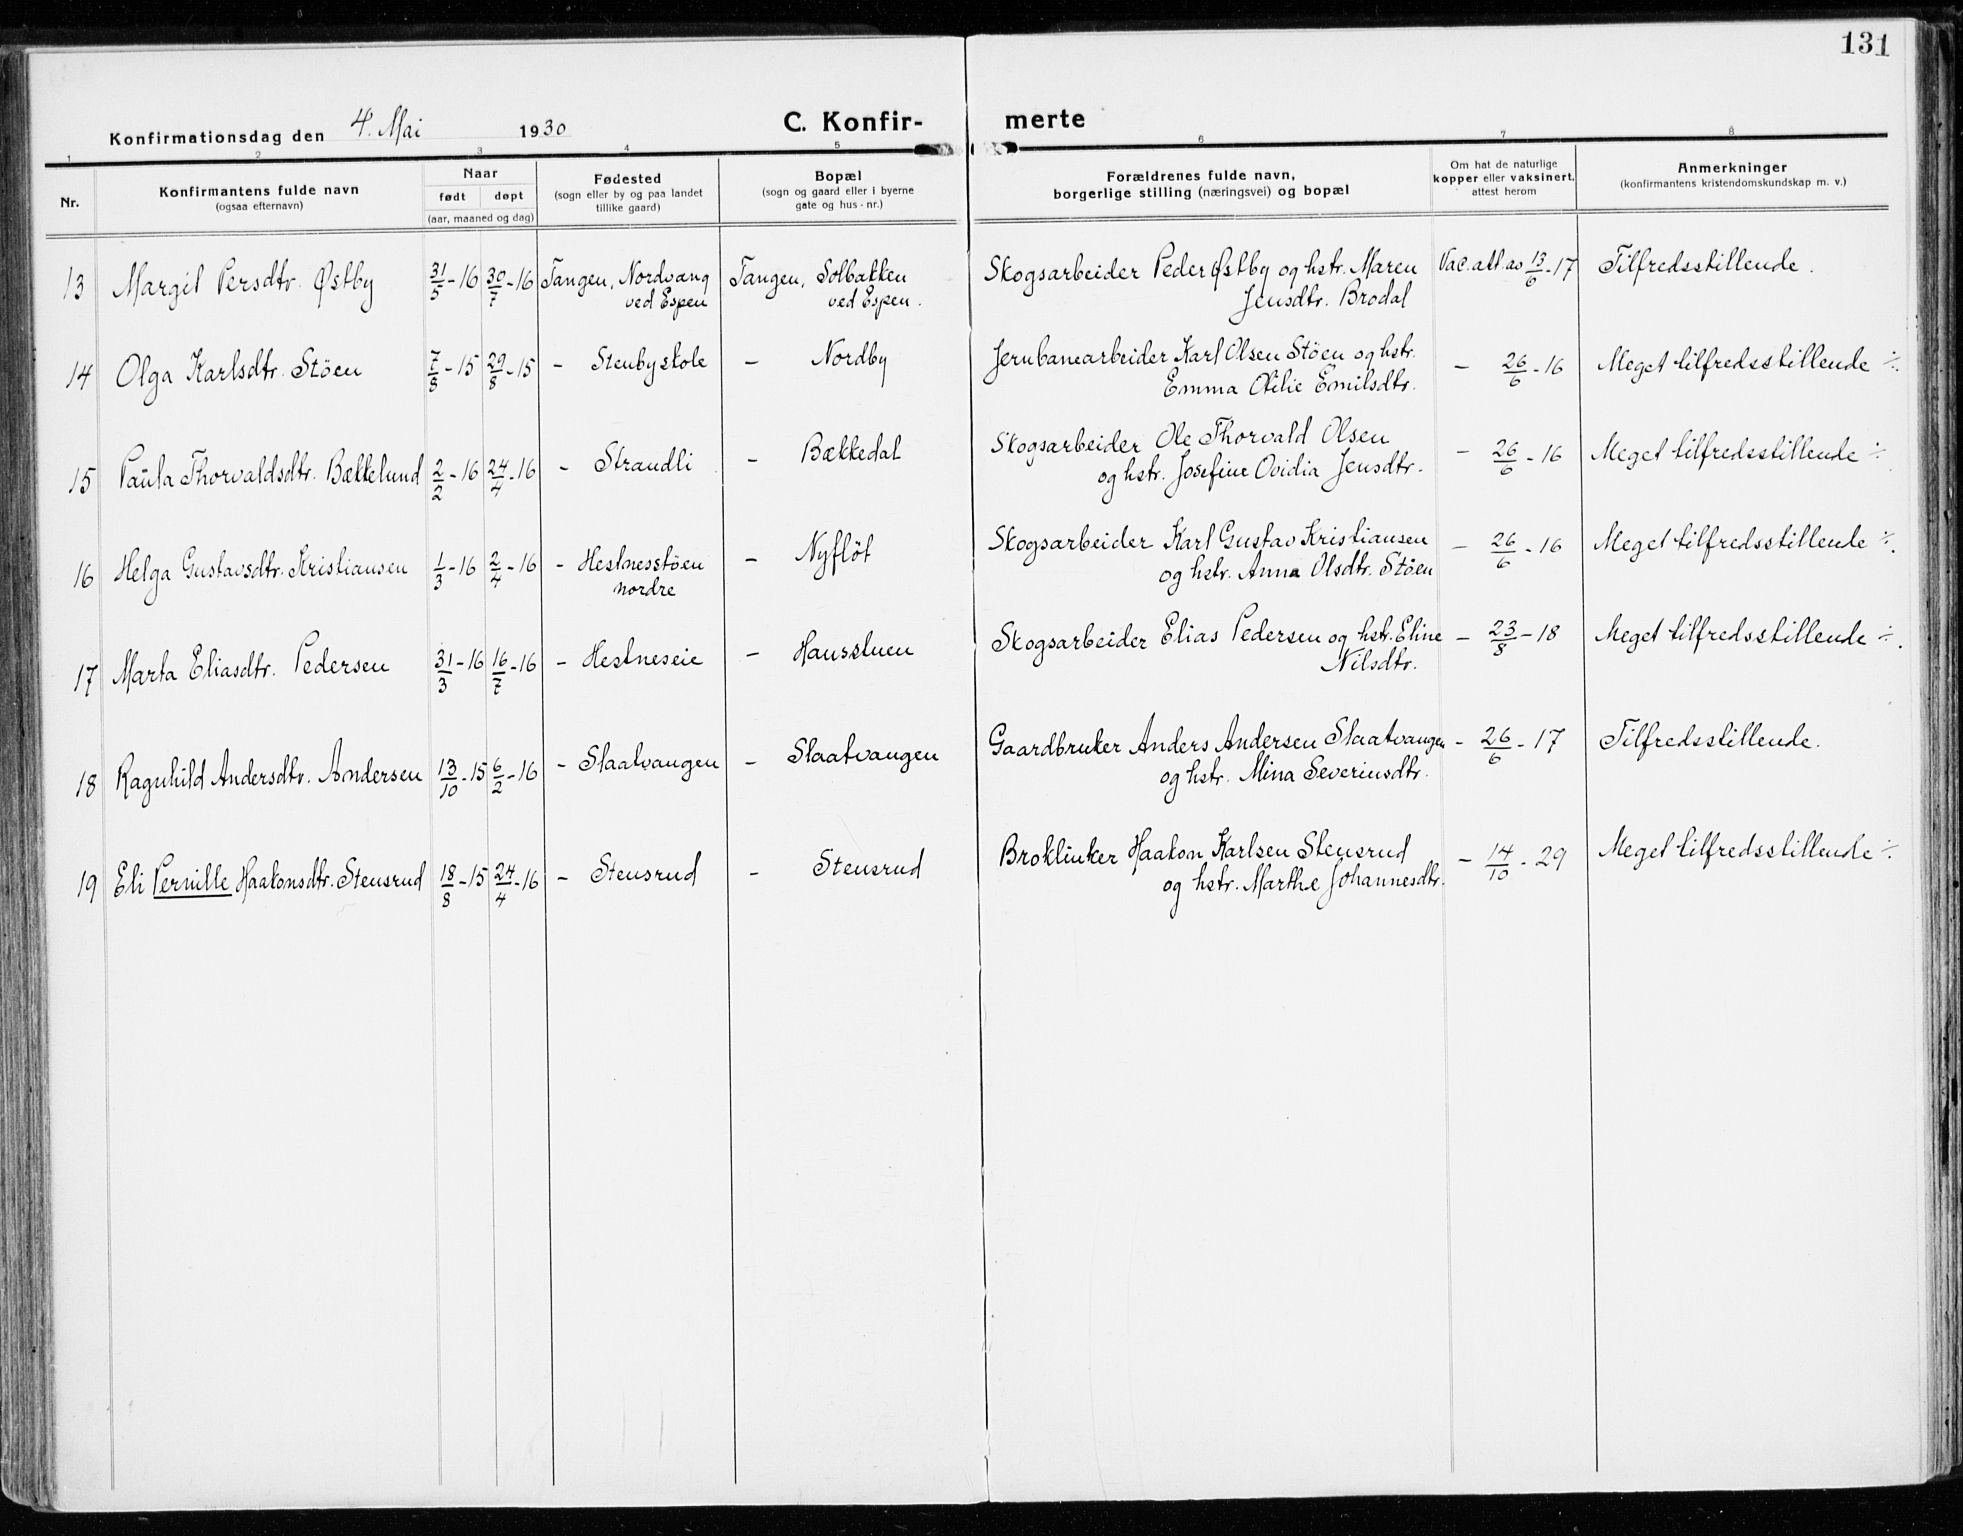 131
Konfirmationsdag den 4. Mai 1930 C. Konfir- merte
1 2 3 4 5 6 7 8
Nr. Konfirmantens fulde navn (ogsaa efternavn) Naar født døpt (aar, maaned og dag) Fødested (sogn eller by og paa landet tillike gaard) Bopæl (sogn og gaard eller i byerne gate og hus-nr.) Forældrenes fulde navn, borgerlige stilling (næringsvei) og bopæl Om hat de naturlige kopper eller vaksinert, attest herom Anmerkninger (konfirmantens kristendomskundskap m. v.)
13 Margit Persdtr. Østby 31/5-16 30/7-16 Tangen, Nordvang Tangen, Solbakken Skogsarbeider Peder Østby og hstr. Maren Vac. att. av 13/6-17 Tilfredsstillende.
ved Espen ved Espen. Jensdtr. Brodal
14 Olga Karlsdtr. Stöen 7/8-15 29/8-15 - Stenby skole - Nordby Jernbanearbeider Karl Olsen Stöen og hstr. - 26/6-16 Meget tilfredsstillende ÷.
Emma Otilie Emilsdtr.
15 Paula Thorvaldsdtr. Bækkelund 2/2-16 24/4-16 - Strandli - Bækkedal Skogsarbeider Ole Thorvald Olsen - 26/6-16 Meget tilfredsstillende ÷.
og hstr. Josefine Ovidia Jensdtr.
16 Helga Gustavsdtr. Kristiansen 1/3-16 2/4-16 - Hestnesstöen - Nyflöt Skogsarbeider Karl Gustav Kristiansen - 26/6-16 Meget tilfredsstillende ÷.
nordre og hstr. Anna Olsdtr. Stöen
17 Marta Eliasdtr. Pedersen 31/3-16 16/7-16 - Hestneseie - Hansstuen Skogsarbeider Elias Pedersen og hstr. Eline - 23/8-18 Meget tilfredsstillende ÷.
Nilsdtr.
18 Ragnhild Andersdtr. Andersen 13/10-15 6/2-16 - Slaatvangen - Slaatvangen Gaardbruker Anders Andersen Slaatvangen - 26/6-17 Tilfredsstillende.
og hstr. Mina Severinsdtr.
19 Eli Pernille Haakonsdtr. Stensrud 18/8-15 24/4-16 - Stensrud - Stensrud Haakon Karlsen Stensrud - 14/10-29 Meget tilfredsstillende ÷.
og hstr. Marthe Johannesdtr.